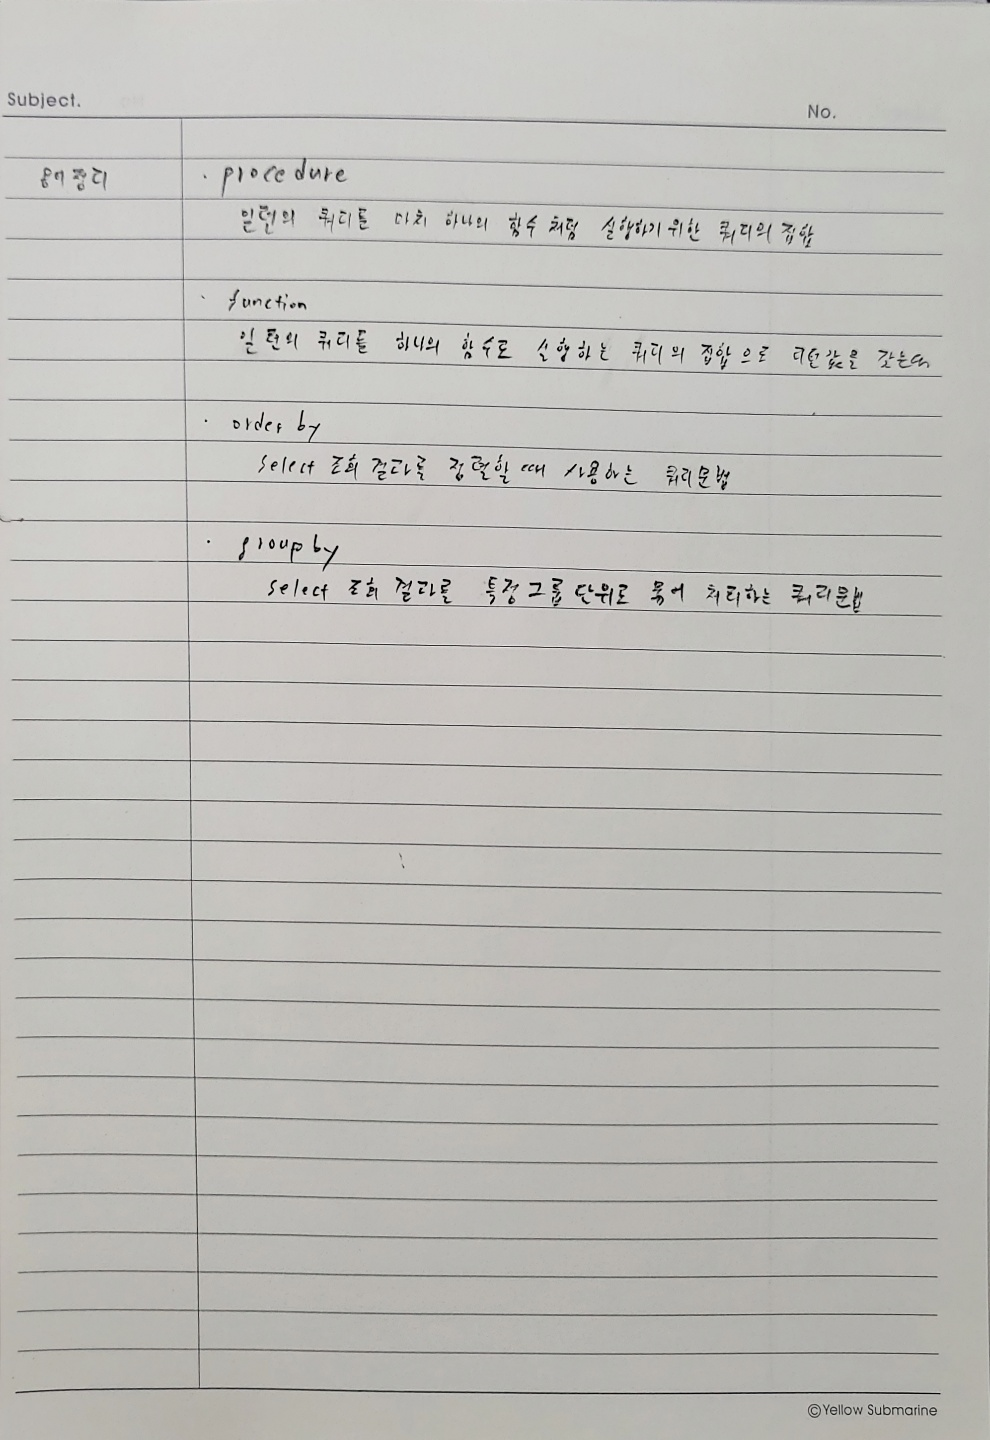 Subject.
No.
용어정리
· procedure
일련의 쿼리를 마치 하나의 함수처럼 실행하기 위한 쿼리의 집합
· function
일련의 쿼리를 하나의 함수로 실행하는 쿼리의 집합으로 리턴값을 갖는다
· order by
select 조회 결과를 정렬할 때 사용하는 쿼리문법
· group by
select 조회 결과를 특정 그룹 단위로 묶어 처리하는 쿼리문법
©Yellow Submarine